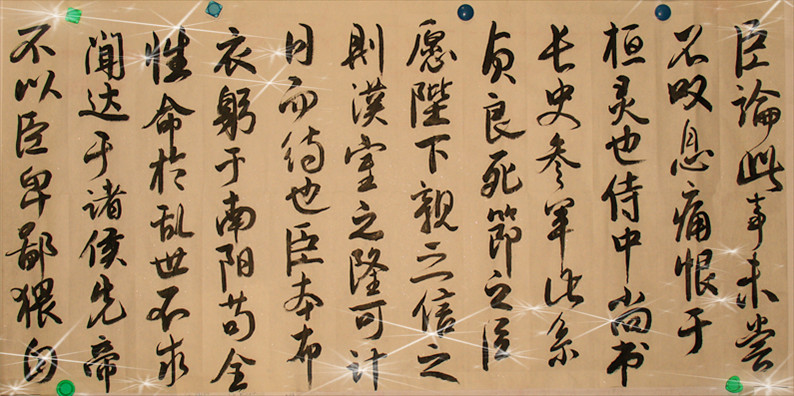 臣論此事未尝
不叹息痛恨于
桓灵也侍中尚书
长史参军此余
贞良死節之臣
愿陛下親之信之
則漢室之隆可计
日而待也臣本布
衣躬于南阳苟全
性命於乱世不求
闻达于诸侯先帝
不以臣卑鄙猥自